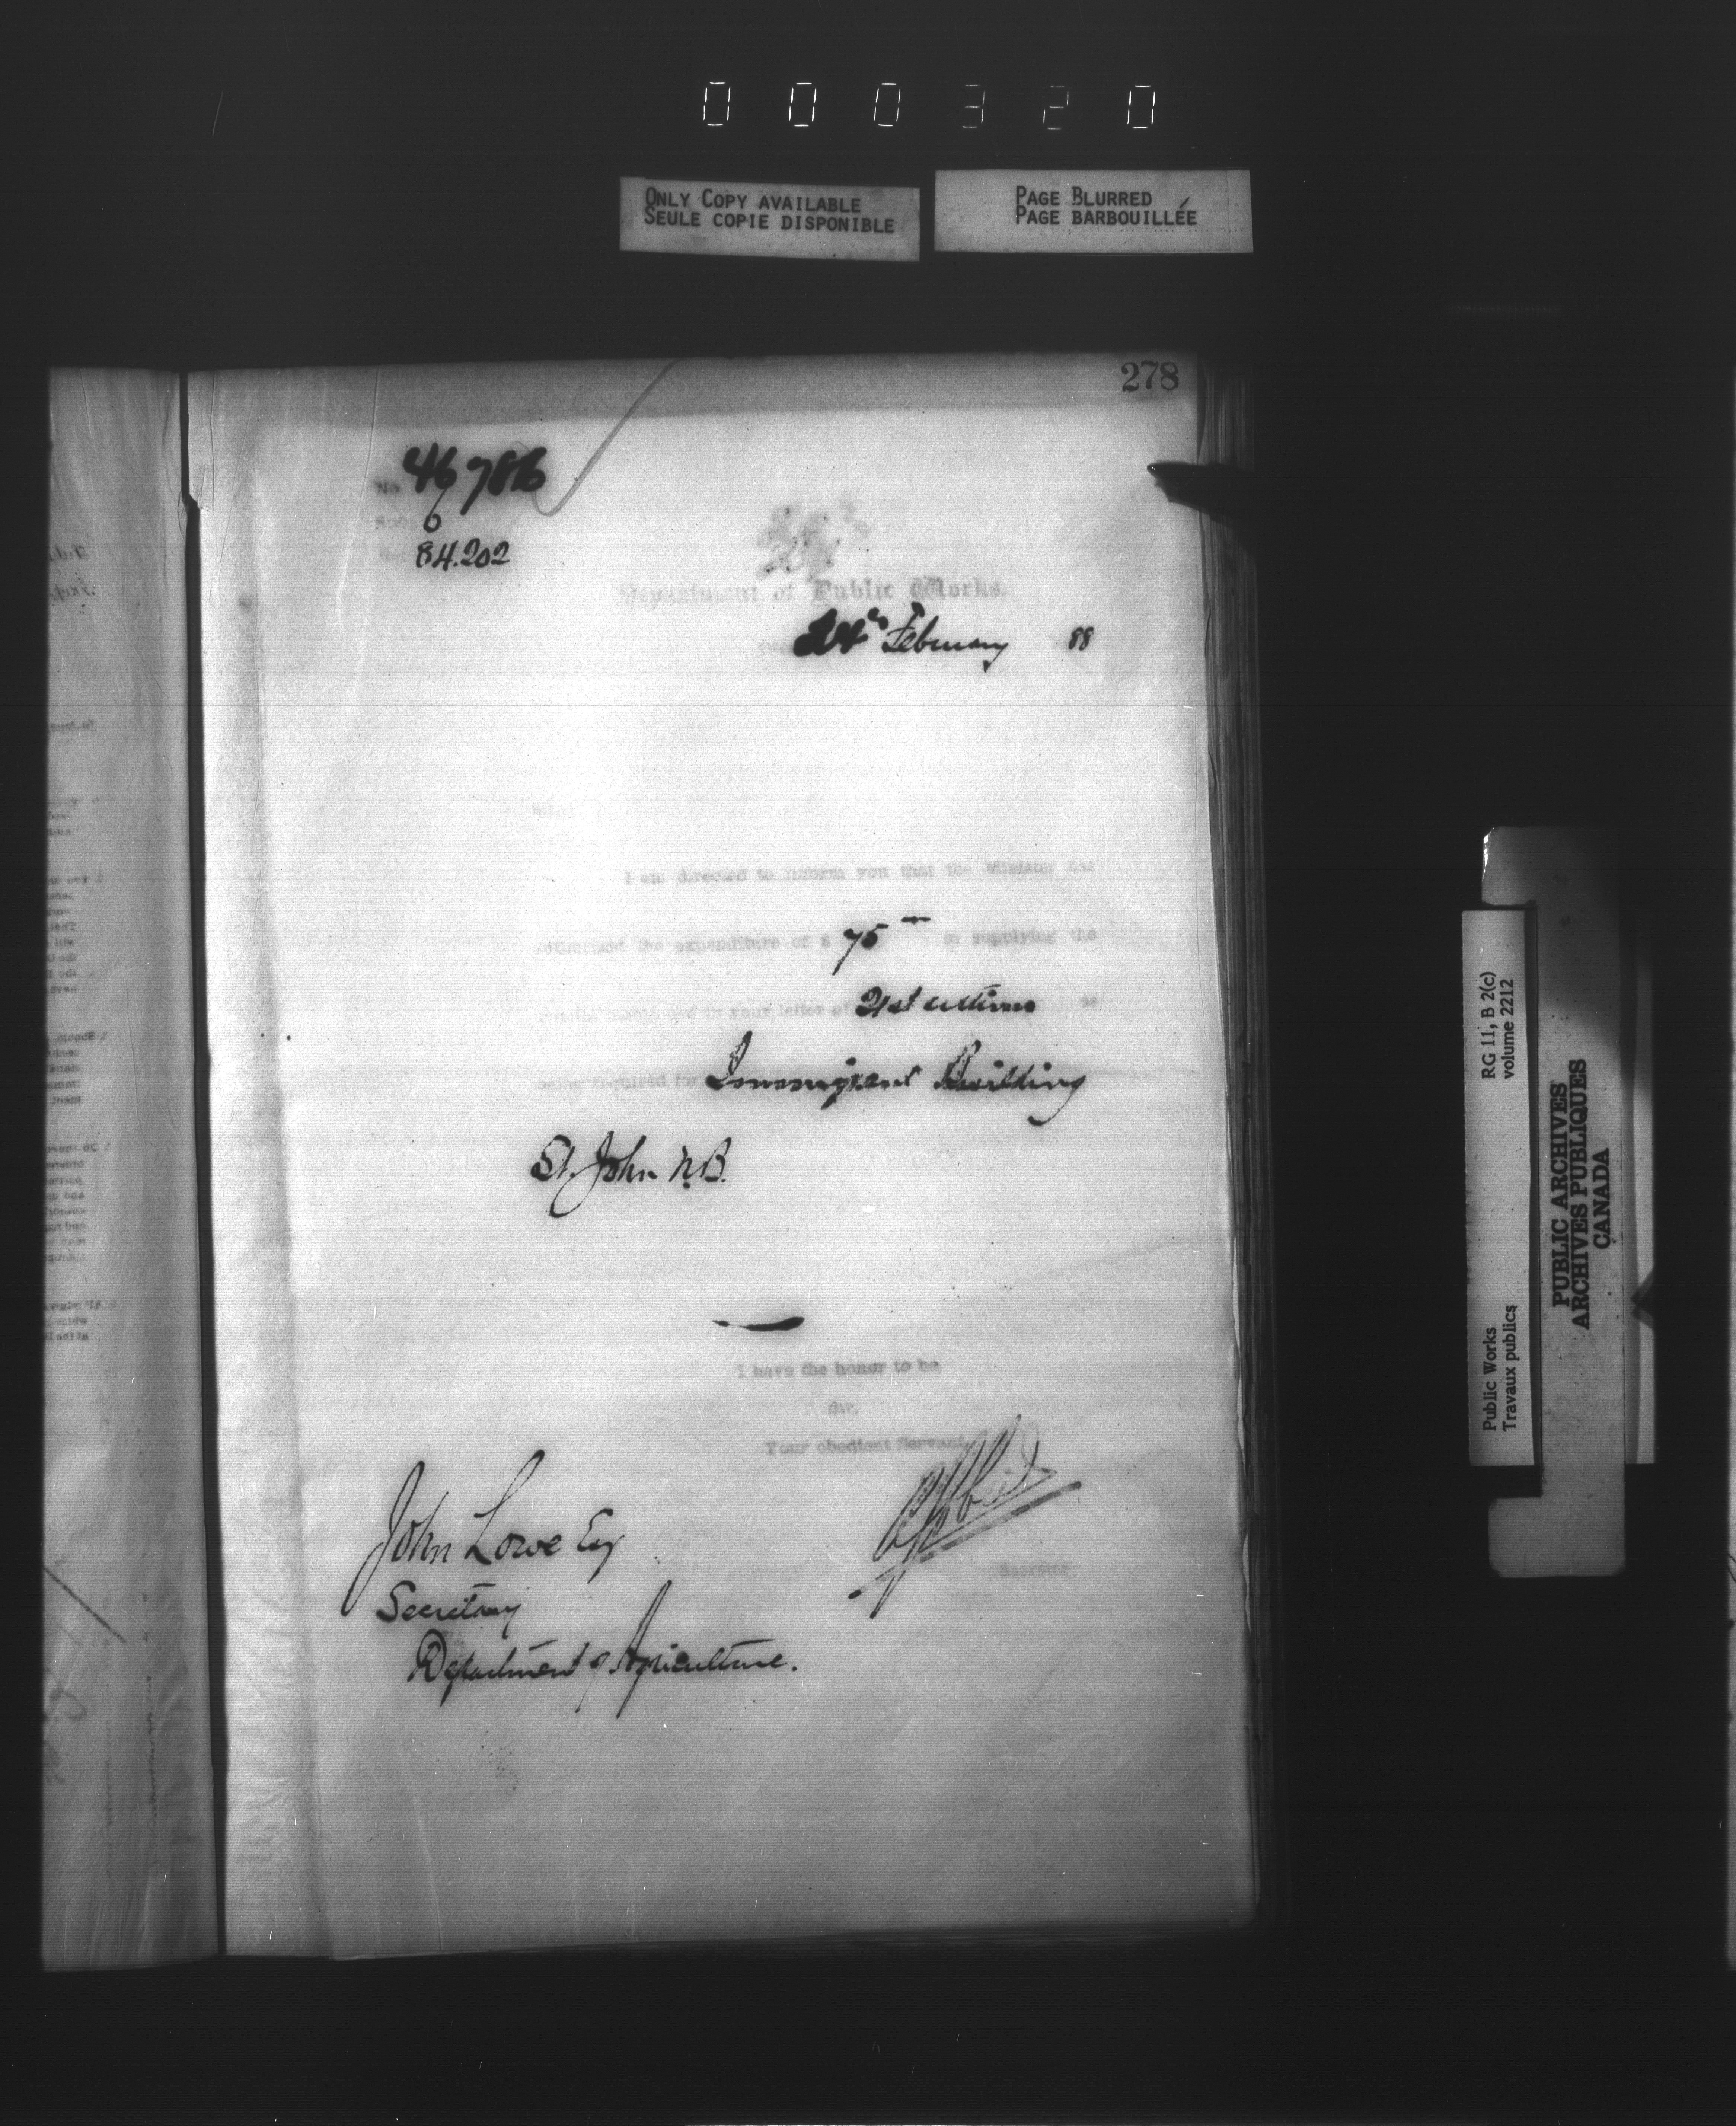 000320
ONLY COPY AVAILABLE
SEULE COPIE DISPONIBLE
PAGE BLURRED
PAGE BARBOUILLÉE
278
No. 46786
84.202
Department of Public Works.
24th February 88
Sir,
I am directed to inform you that the Minister has
authorized the expenditure of $ 75 in supplying the
mentioned in your letter of 21st as
being required for Immigrant Building
St. John N.B.
I have the honor to be
Sir,
Your obedient Servant,
Secretary
John Lowe Esq
Secretary
Department of Agriculture.
RG 11, B 2(c)
volume 2212
Public Works
Travaux publics
PUBLIC ARCHIVES
ARCHIVES PUBLIQUES
CANADA